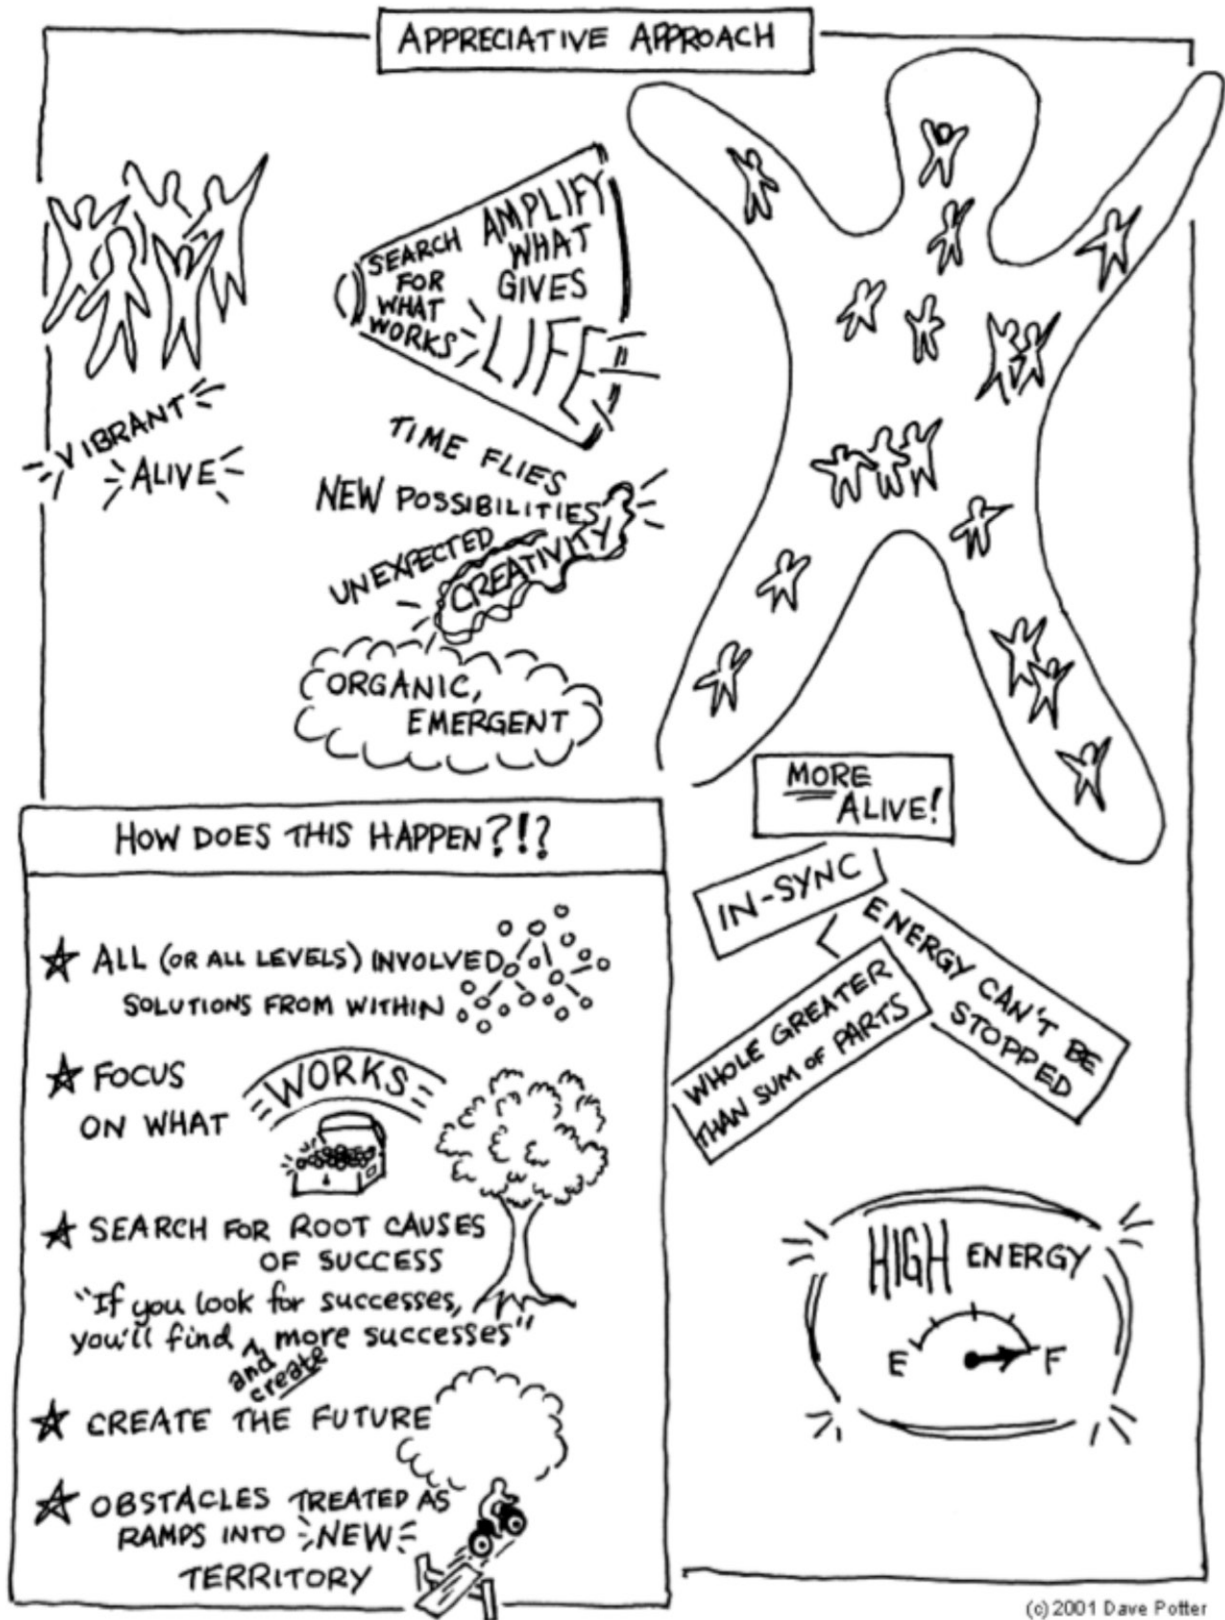 APPRECIATIVE APPROACH
SEARCH
FOR
WHAT
WORKS
AMPLIFY
WHAT
GIVES
LIFE
VIBRANT
ALIVE
TIME FLIES
NEW POSSIBILITIES
UNEXPECTED
CREATIVITY
ORGANIC,
EMERGENT
MORE
ALIVE!
IN-SYNC
ENERGY CAN'T BE
STOPPED
WHOLE GREATER
THAN SUM OF PARTS
HIGH ENERGY
E F
HOW DOES THIS HAPPEN?!?
ALL (OR ALL LEVELS) INVOLVED
SOLUTIONS FROM WITHIN
FOCUS
ON WHAT
WORKS
SEARCH FOR ROOT CAUSES
OF SUCCESS
"If you look for successes,
you'll find ^ more successes"
and
create
CREATE THE FUTURE
OBSTACLES TREATED AS
RAMPS INTO NEW
TERRITORY
(c) 2001 Dave Potter